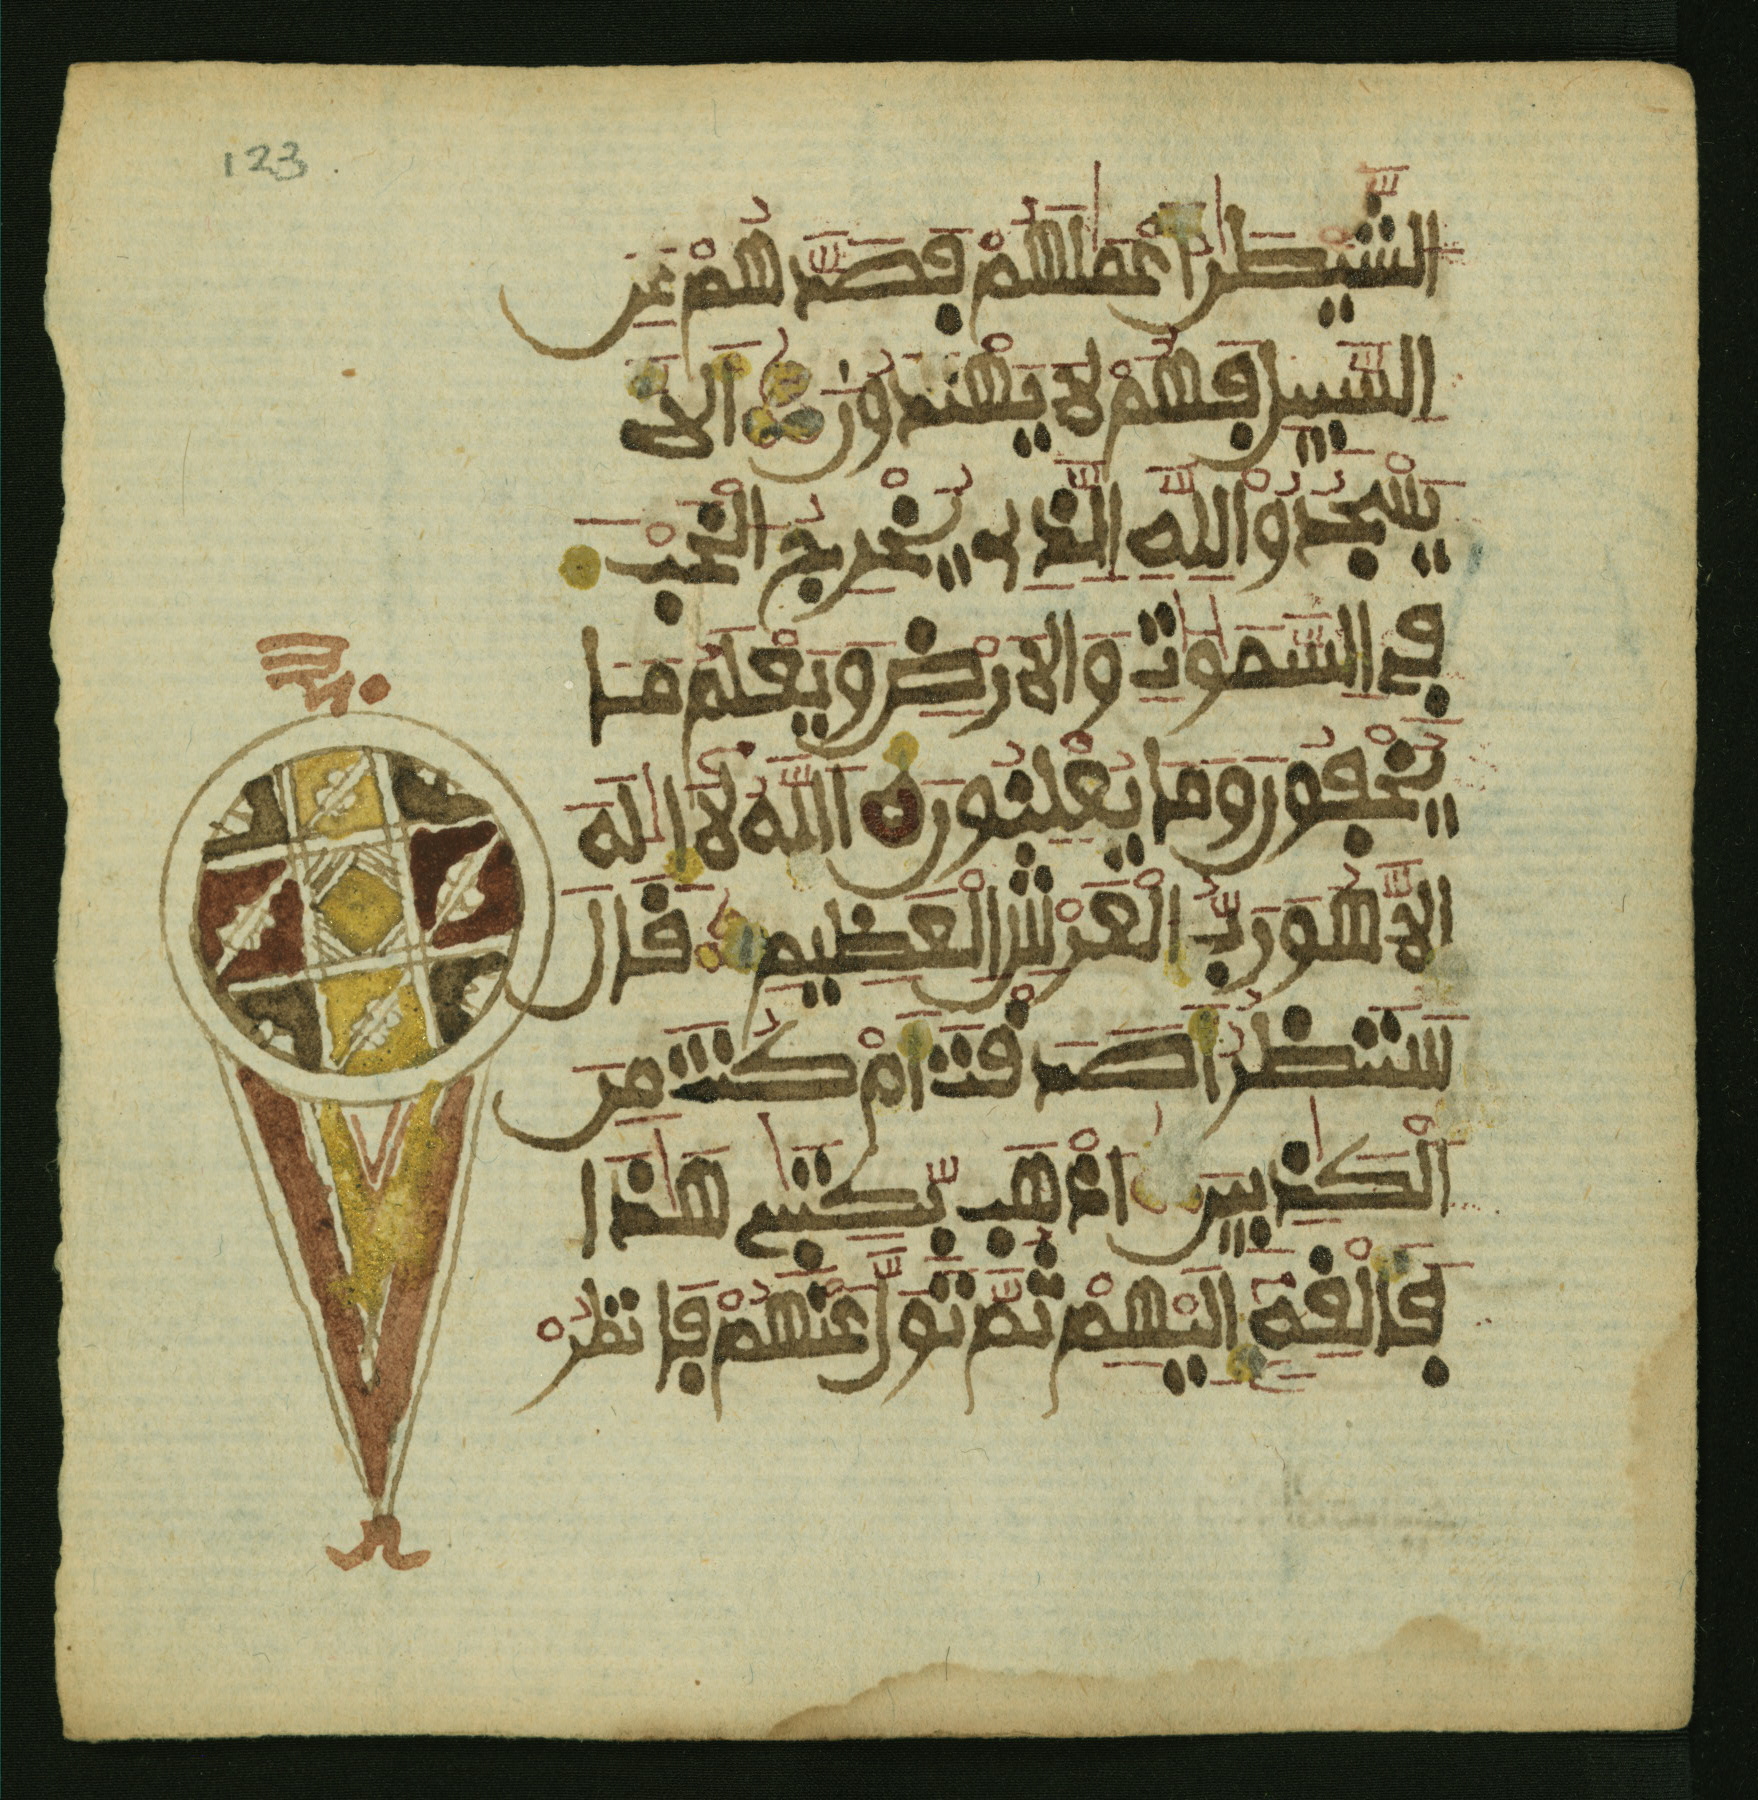 123
الشَّيْطَٰنُ أَعْمَٰلَهُمْ فَصَدَّهُمْ عَنِ
السَّبِيلِ فَهُمْ لَا يَهْتَدُونَ أَلَّا
يَسْجُدُوا۟ لِلَّهِ الَّذِى يُخْرِجُ الْخَبْءَ
فِى السَّمَٰوَٰتِ وَالْأَرْضِ وَيَعْلَمُ مَا
يُخْفُونَ وَمَا يُعْلِنُونَ اللَّهُ لَا إِلَٰهَ
إِلَّا هُوَ رَبُّ الْعَرْشِ الْعَظِيمِ قَالَ
سَنَنظُرُ أَصَدَقْتَ أَمْ كُنتَ مِنَ
الْكَٰذِبِينَ اذْهَب بِّكِتَٰبِى هَٰذَا
فَأَلْقِهِ إِلَيْهِمْ ثُمَّ تَوَلَّ عَنْهُمْ فَانظُرْ